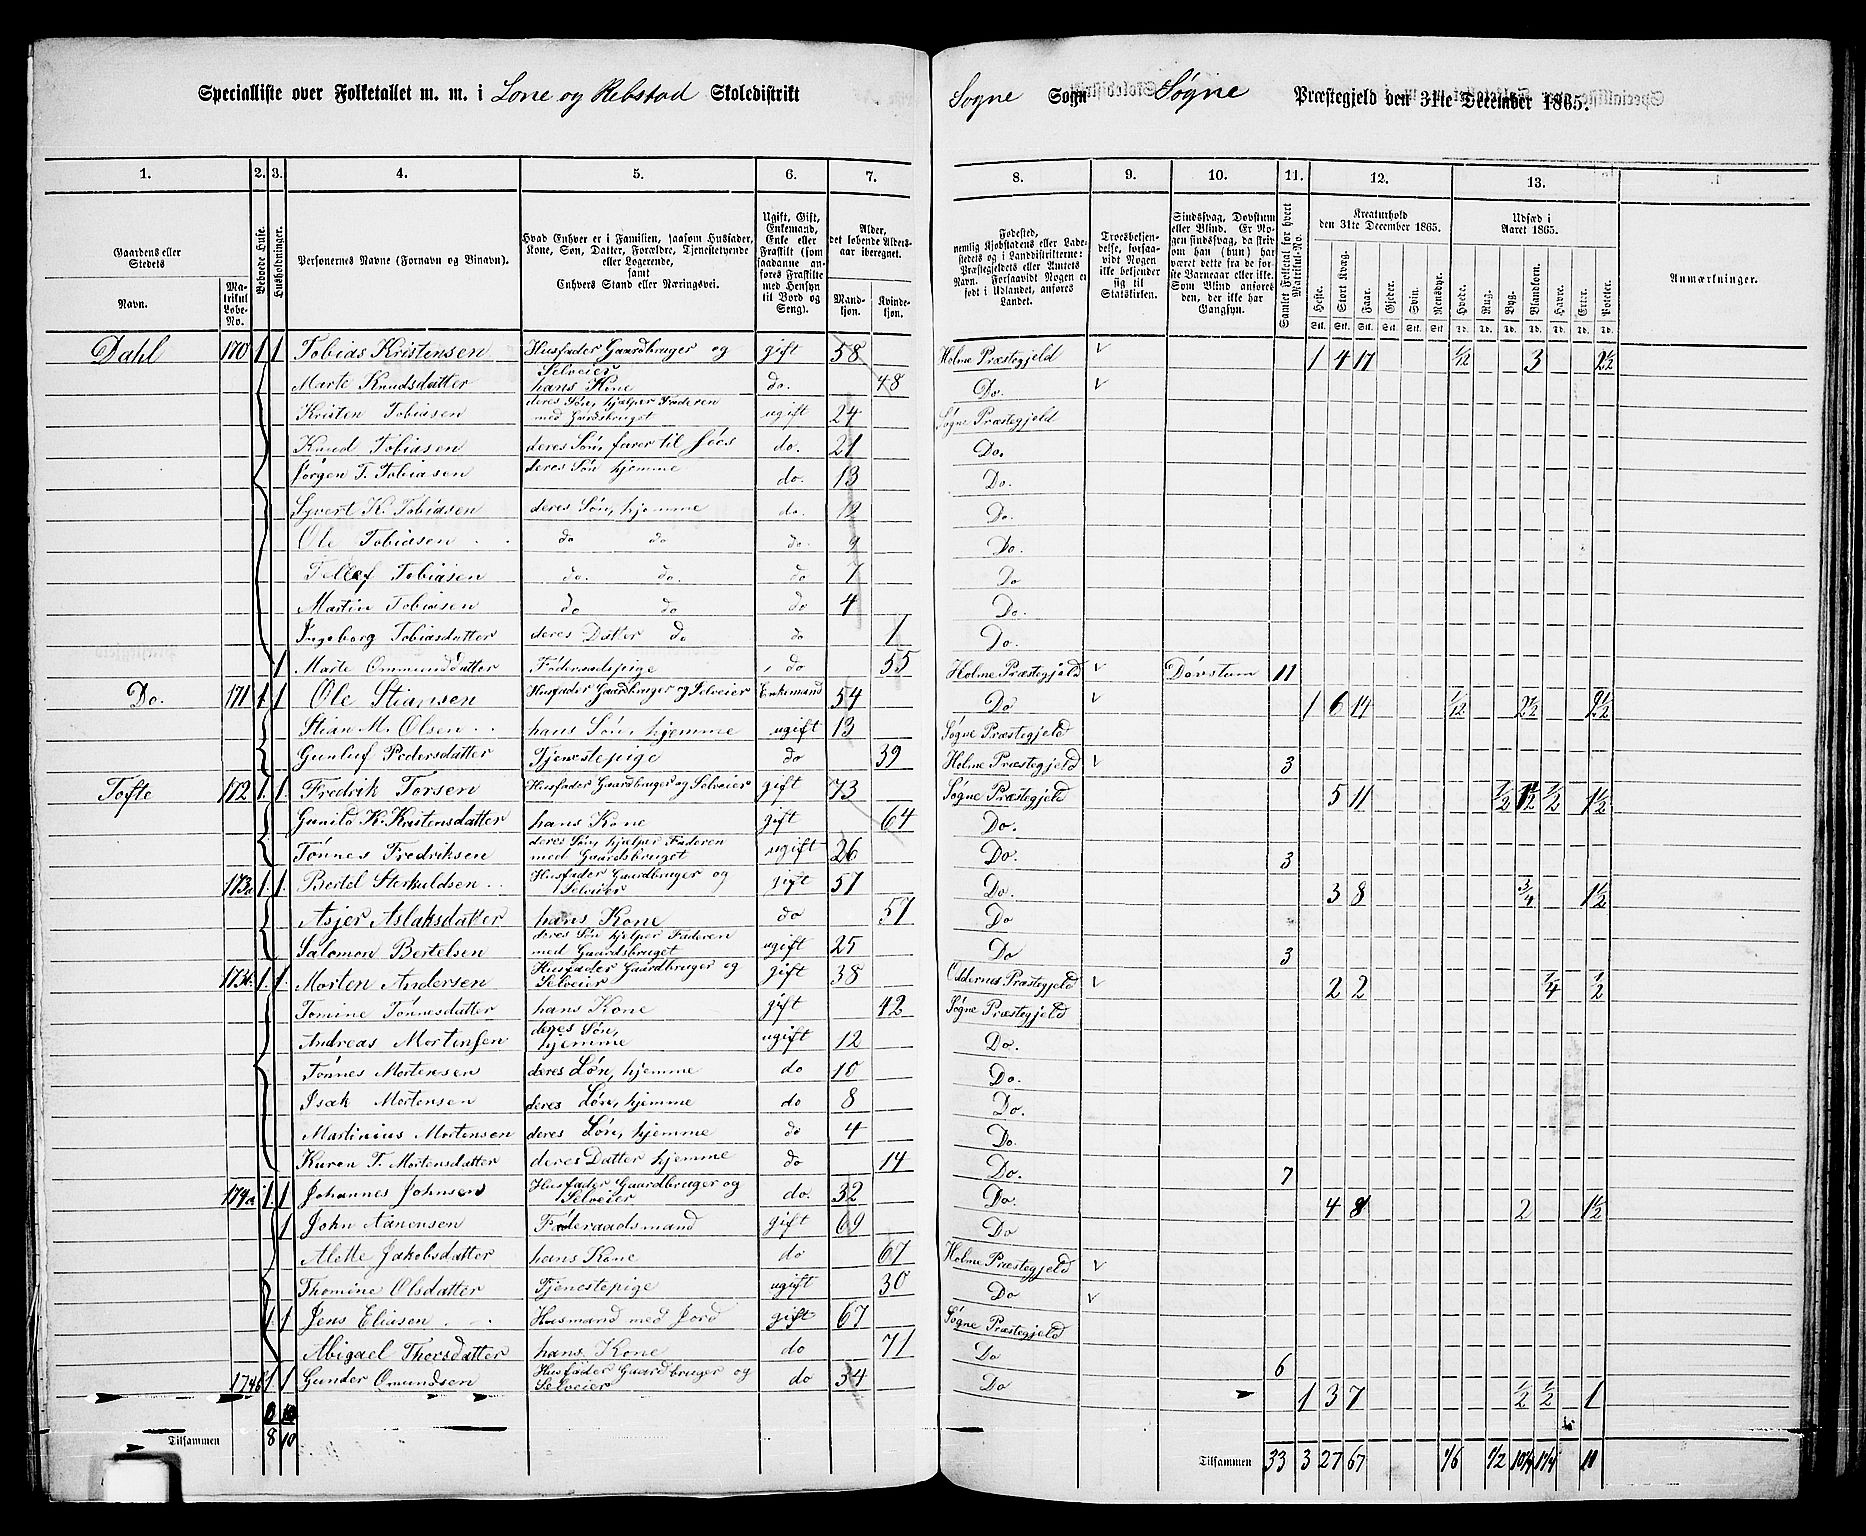 Specialliste over Folketallet m. m. i Lone og Rebstad Skoledistrikt
Søgne Sogn Søgne Præstegjeld den 31te December 1865.
1. 2. 3. 4. 5. 6. 7. 8. 9. 10. 11. 12. 13.
Gaardens eller Stedets
Navn.
Matrikul Løbe-No.
Beboede Huse.
Husholdninger.
Personernes Navne (Fornavn og Binavn).
Hvad Enhver er i Familien, saasom Husfader, Kone, Søn, Datter, Forældre, Tjenestetyende eller Logerende, samt Enhvers Stand eller Næringsvei.
Ugift, Gift, Enkemand, Enke eller Fraskilt (som saadanne anføres Fraskilte med Hensyn til Bord og Seng).
Alder, det løbende Aldersaar iberegnet.
Mandkjøn. Kvindekjøn.
Fødested, nemlig Kjøbstadens eller Ladestedets og i Landdistrikterne: Præstegjeldets eller Amtets Navn. Forsaavidt Nogen er født i Udlandet, anføres Landet.
Troesbekjendelse, forsaavidt Nogen ikke bekjender sig til Statskirken.
Sindssvag, Døvstum eller Blind. Er Nogen sindssvag, da skrives om han (hun) har været dette fra de første Barneaar eller ikke. Som Blind anføres den, der ikke har Gangsyn.
Samlet Folketal for hvert Matrikul-No.
Kreaturhold den 31te December 1865.
Heste. Stort Kvæg. Faar. Gjeder. Svin. Rensdyr.
Udsæd i Aaret 1865.
Hvede. Rug. Byg. Blandkorn. Havre. Erter. Poteter.
Anmærkninger.
Dahl 170 1 1 Tobias Kristensen Husfader Gaardbruger og Selveier gift 58 Holme Præstegjeld 1 4 17 1/12 3 2 1/2
Marte Knudsdatter hans Kone do. 48 Do.
Kristen Tobiasen deres Søn, hjælper Faderen med Gaardsbruget ugift 24 Søgne Præstegjeld
Knud Tobiasen deres Søn, farer til søes do. 21 Do.
Jørgen T. Tobiasen deres Søn hjemme do. 13 Do.
Syvert K. Tobiasen deres Søn, hjemme do. 12 Do.
Ole Tobiasen do do do. 9 Do.
Tellef Tobiasen do. do. do 7 Do
Martin Tobiasen do do do 4 Do.
Ingeborg Tobiasdatter deres Datter do do 1 Do.
1 Marte Ommundsdatter Føderaadspige do 55 Holme Præstegjeld Døvstum 11
Do. 171 1 1 Ole Stiansen Husfader Gaardbruger og Selveier Enkemand 54 Do 1 6 14 1/12 2 1/2 2 1/2
Stian M. Olsen hans Søn, hjemme ugift 13 Søgne Præstegjeld
Gunluf Pedersdatter Tjenestepige do 39 Holme Præstegjeld 3
Tofte 172 1 1 Fredrik Torsen Husfader Gaardbruger og Selveier gift 73 Søgne Præstegjeld 5 11 1/2 1 1/2 1/2 1 1/2
Gunild K. Kristensdatter hans Kone gift 64 Do.
Tønnes Fredriksen deres Søn, hjælper Faderen med Gaardsbruget ugift 26 Do. 3
173a 1 1 Bertel Sterkuldsen Husfader Gaardbruger og Selveier gift 57 Do. 3 8 3/4 1 1/2
Asjer Aslaksdatter hans Kone do 57 Do
Salomon Bertelsen deres Søn hjelper Faderen med Gaardsbruget ugift 25 Do 3
173b 1 1 Morten Andersen Husfader Gaardbruger og Selveier gift 38 Oddernes Præstegjeld 2 2 1/4 1/2
Tomine Tønnesdatter hans Kone gift 42 Søgne Præstegjeld
Andreas Mortensen deres Søn, hjemme ugift 12 Do.
Tønnes Mortensen deres Søn, hjemme do 10 Do.
Isak Mortensen deres Søn, hjemme do 8 Do.
Martinius Mortensen deres Søn, hjemme do 4 Do.
Karen T. Mortensdatter deres Datter hjemme do 14 Do. 7
174a 1 1 Johannes Johnsen Husfader Gaardbruger og Selveier do. 32 Do. 4 8 2 1 1/2
1 John Aanensen Føderaadsmand gift 69 Do
Alette Jakobsdatter hans Kone do 67 Holme Præstegjeld
Thomine Olsdatter Tjenestepige ugift 30 Do
1 1 Jens Eliasen Husmand med Jord gift 67 Søgne Præstegjeld
Abigael Thorsdatter hans Kone do 71 Do 6
174b 1 1 Gunder Omundsen Husfader Gaardbruger og Selveier do 34 Do 1 3 7 1/2 1/2 1
Tilsammen 8 10
Tilsammen 33 3 27 67 1/6 1/2 10 1/4 1 1/4 11